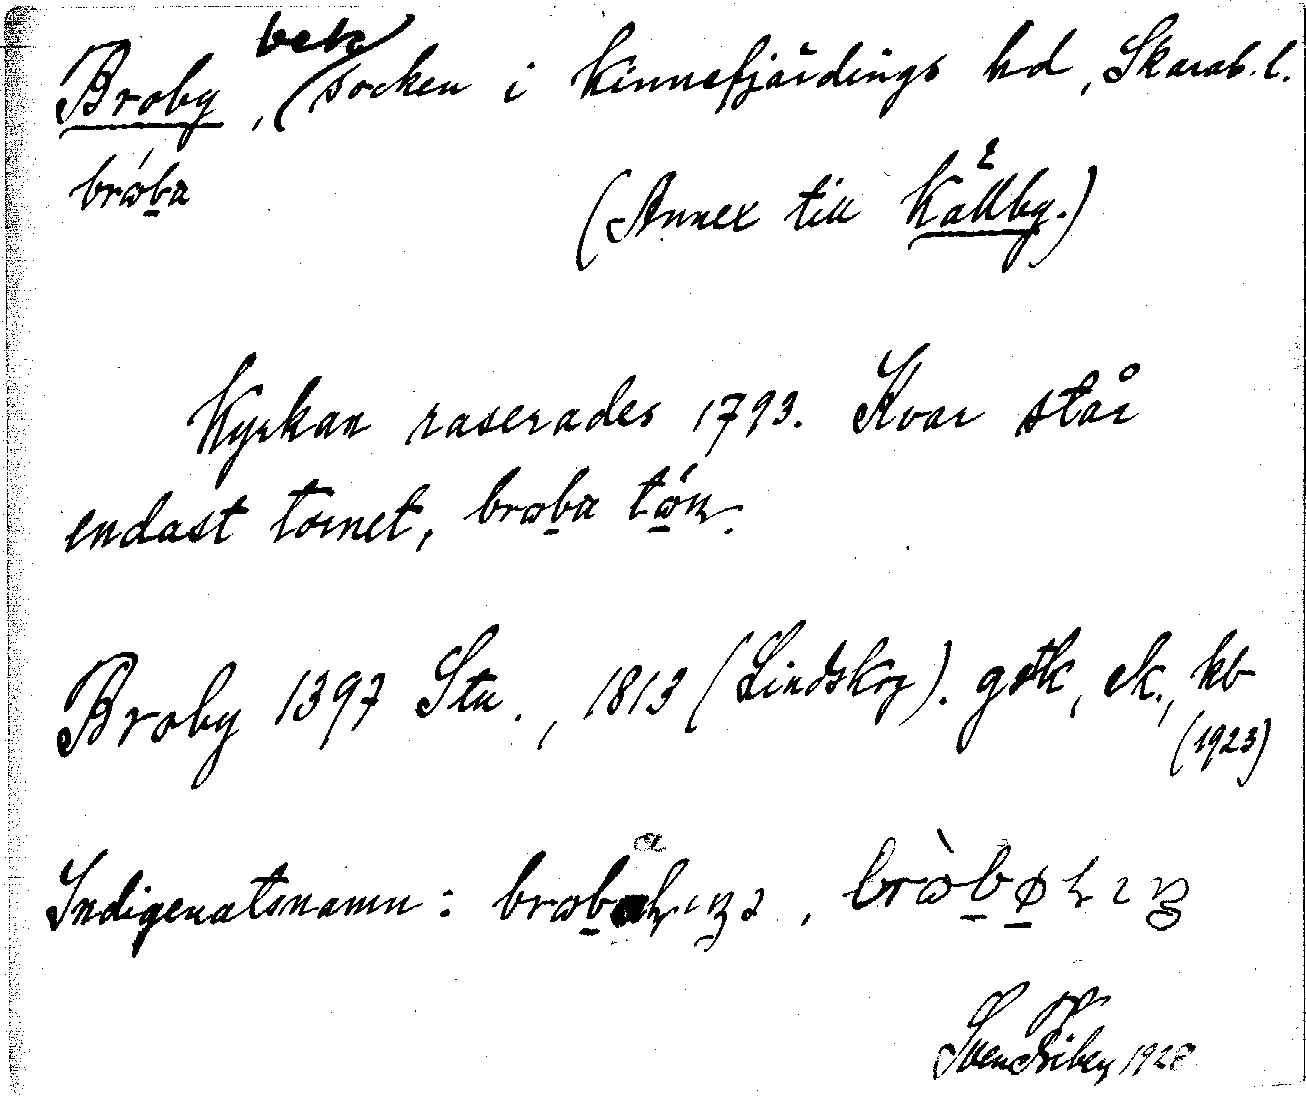 Broby, (socken i Kinnefjärdings hd, Skarab. l.
bro̱ba
(Annex till Källby.)
Kyrkan raserades 1793. Kvar står
endast tornet, broba
Broby 1397 Stu., 1813 (Lindskog). gstk, ek., kb
(1923)
Indigenatsnamn:
Sven Ribey 1928